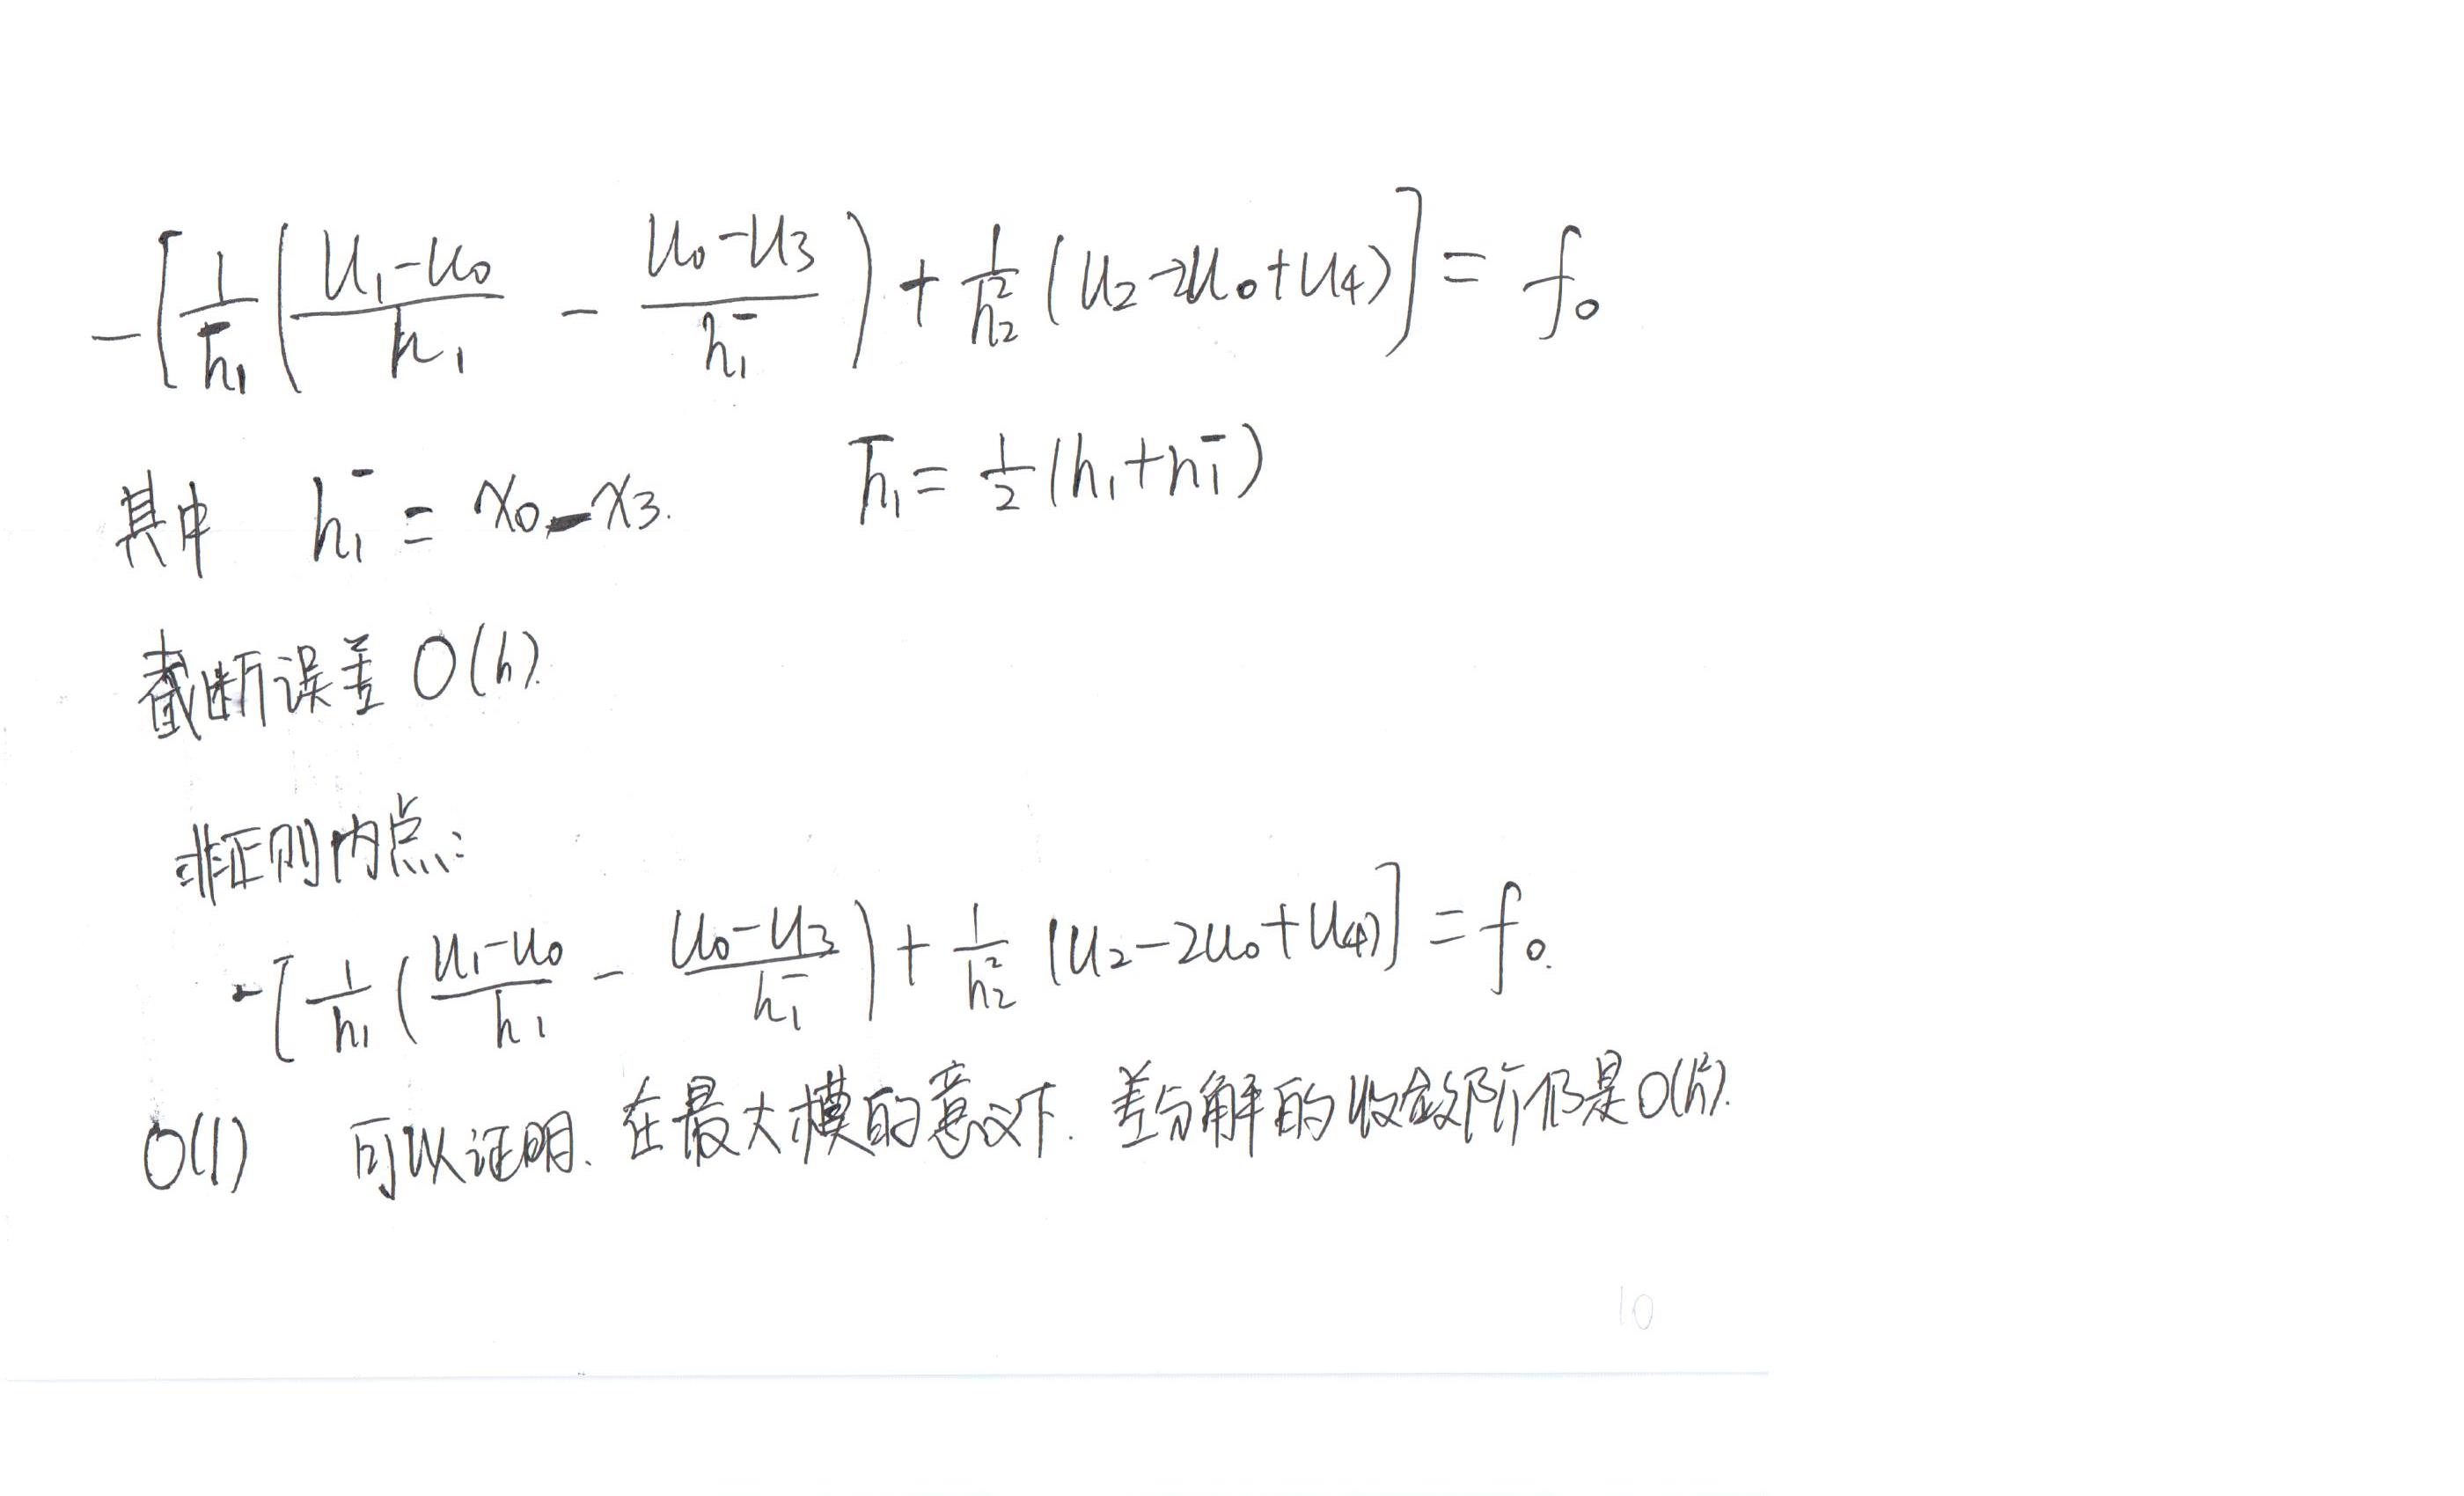 -[1/h̄₁((u₁-u₀)/h₁ - (u₀-u₃)/h₁⁻) + 1/h₂²(u₂-2u₀+u₄)] = f₀
其中 h₁⁻ = x₀-x₃. h̄₁ = 1/2(h₁+h₁⁻)
截断误差 O(h).
非正则内点:
-[1/h₁((u₁-u₀)/h₁ - (u₀-u₃)/h₁⁻) + 1/h₂²(u₂-2u₀+u₄)] = f₀.
O(1) 可以证明、在最大模的意义下. 差分解的收敛阶仍是O(h²).
10